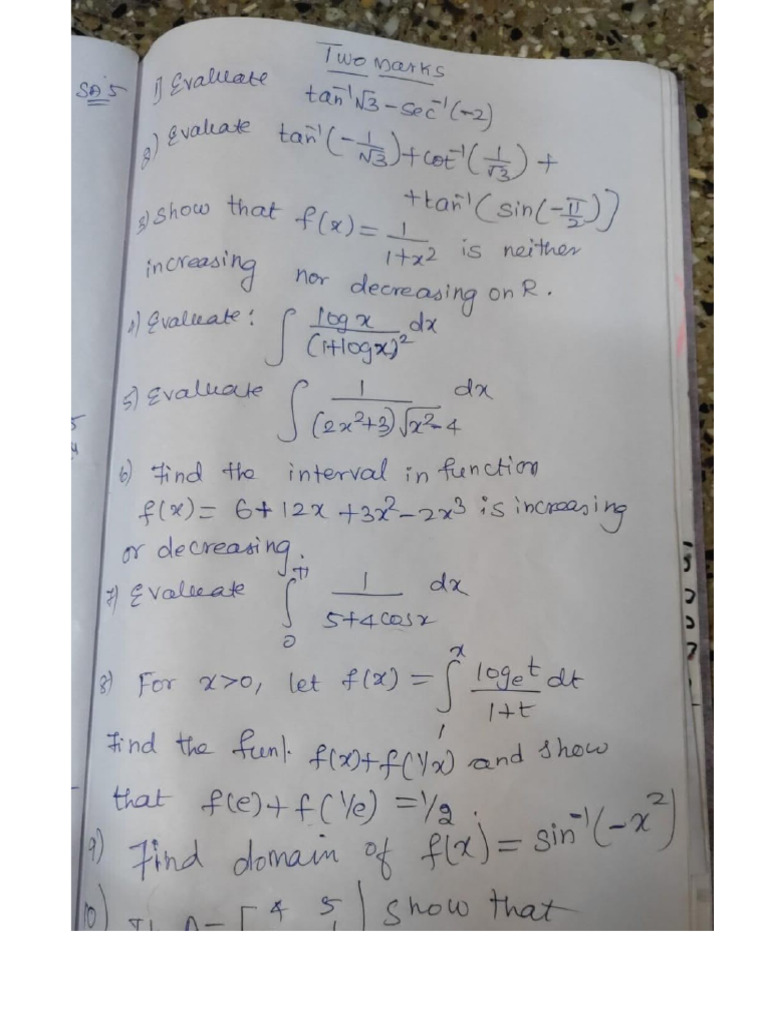 Two marks
SQ 5
1) Evaluate tan⁻¹√3 - sec⁻¹(-2)
2) Evaluate tan⁻¹(-1/√3) + cot⁻¹(1/√3) +
+ tan⁻¹(sin(-π/2))
3) Show that f(x) = 1/1+x² is neither
increasing nor decreasing on R.
4) Evaluate: ∫ log x/(1+logx)² dx
5) Evaluate ∫ 1/(2x²+3)√x²-4 dx
6) Find the interval in function
f(x) = 6+12x+3x²-2x³ is increasing
or decreasing.
7) Evaluate ∫₀^π 1/5+4cosx dx
8) For x>0, let f(x) = ∫₁ˣ logₑt/1+t dt
Find the funl. f(x)+f(1/x) and show
that f(e)+f(1/e) = 1/2.
9) Find domain of f(x) = sin⁻¹(-x²)
10) [4 5 show that